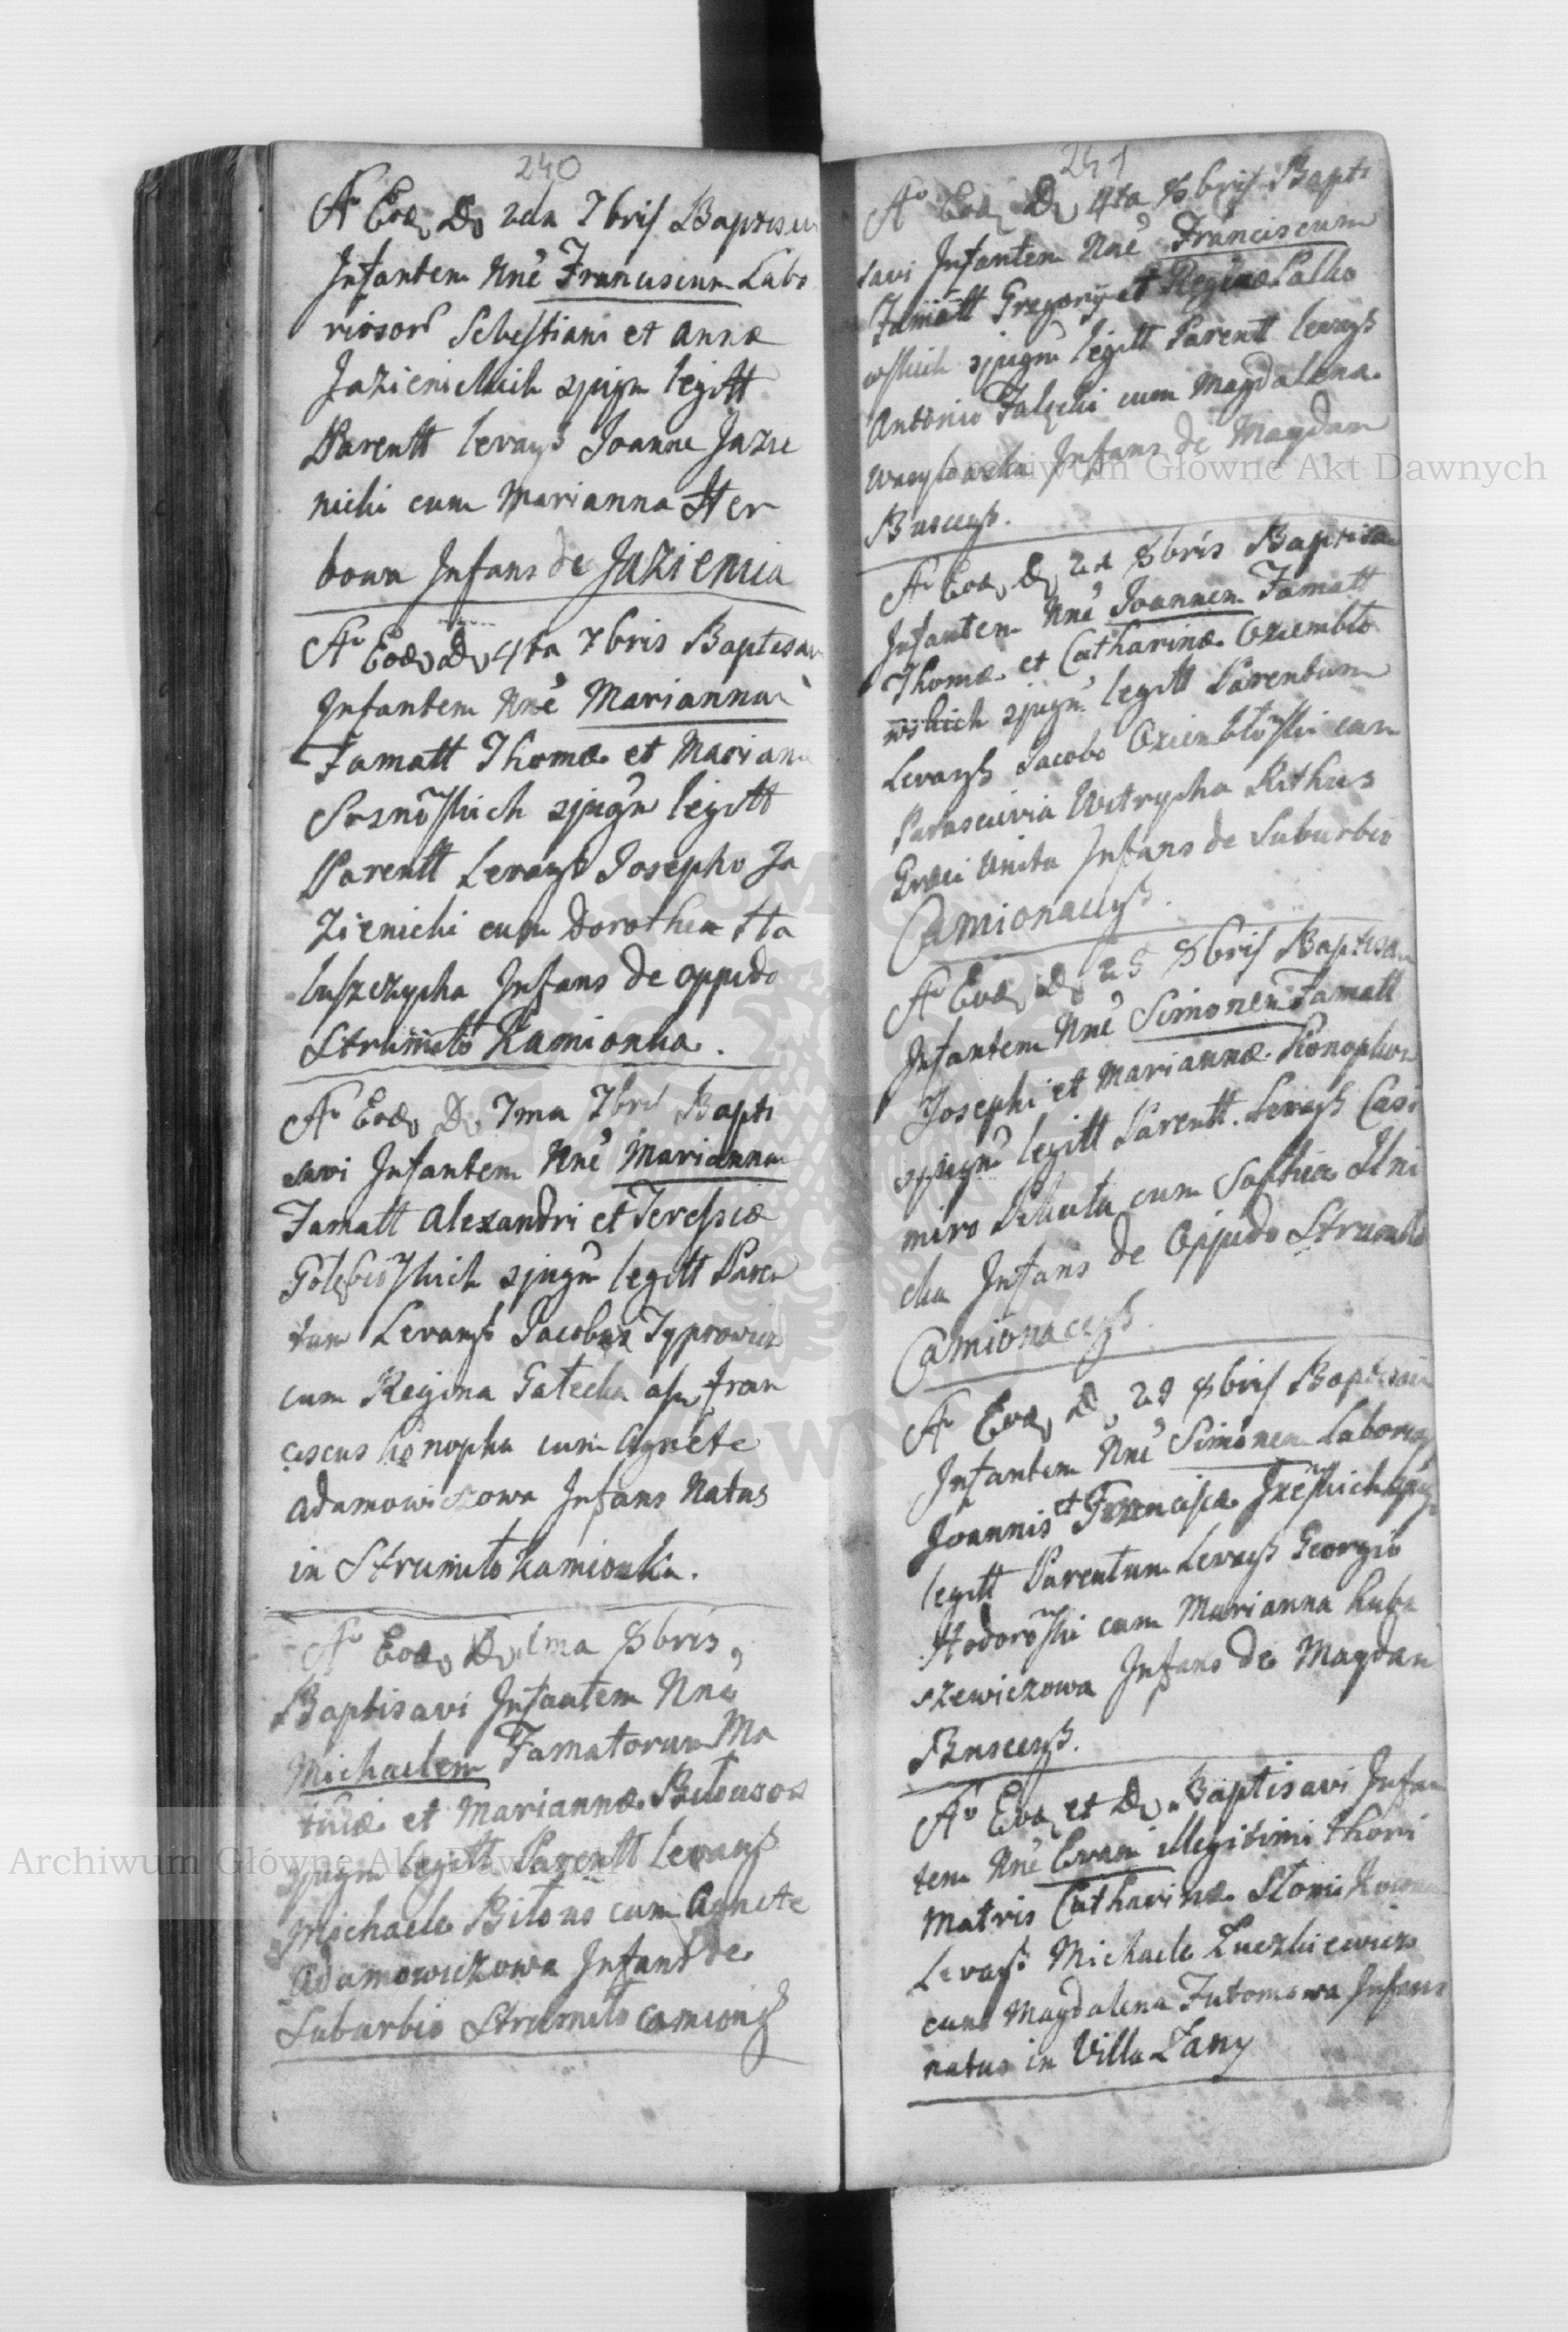 240
Ao Eod. D. 2da 7bris Baptisavi
Infantem Nne Franciscum Labo
riosor Sebestiani et Annæ
Jazienickich cjugm legitt
Parentt levays Joanne Jazie
nicki cum Marianna Her
bowa Infans de Jazienica
Ao Eod. D. 4ta 7bris Baptisavi
Infantem Nne Mariannam
Famatt Thomæ et Mariannæ
Sosnoskich cjugm legitt
Parentt Levays Josepho Ja
zienicki cum Dorothea Ha
luszczycha Infans de oppido
Strumiło Kamionka.
Ao Eod. D. 7ma 7bris Bapti
savi Infantem Nne Mariannam
Famatt Alexandri et Teressiæ
Golębioskich cjugm legitt Paren
tum Levays Jacobus Typrowicz
cum Regina Gatecka ass Fran
ciscus Konopka cum Agnete
Adamowiczowa Infans Natus
in Strumiło Kamionka.
Ao Eod. D. 1ma 8bris,
Baptisavi Infantem Nne
Michaelem Famatorum Ma
thiæ et Mariannæ Biłousow
cjugm legitt Parentt levays
Michaele Biłous cum Agnete
Adamowiczowa Infans de
Suburbio Strumiło Camions
241
Ao Eod. D. 4ta 8bris Bapti
savi Infantem Nne Franciscum
Famatt Gregorij et Reginæ Palko
wskich cjugm legitt Parentt levays
Antonio Falęcki cum Magdalena
Infans de Magdan
Buscens.
Ao Eod. D. 21 8bris Baptisavi
Infantem Nne Joannem Famatt
Thomæ et Catharinæ Oziembło
wskich cjugm legitt Parentum
Levays Jacobo Oziembłoski cum
Parascivia Witrycha Rithus
Græci Unita Infans de Suburbio
Camionacens.
Ao Eod. D. 25 8bris Baptisavi
Infantem Nne Simonem Famatt
Josephi et Mariannæ Konopkow
cjugm legitt Parentt. Levays Casi
miro Pekuta cum Sophia Ilni
cka Infans de Oppido Strumiło
Camionacens.
Ao Eod. D. 29 8bris Baptisavi
Infantem Nne Simonem Laborios
Joannis et Franciscæ cjug
legitt Parentum Levays Georgio
Hodoroski cum Marianna Luka
szewiczowa Infans de Magdan
Buscens.
Ao Eod. et D. Baptisavi Infan
tem Nne Evam illegitimi thori
Matris Catharinæ
Levays Michaele Łuczkiewicz
cum Magdalena Futomowa Infans
natus in Villa Łany
Archiwum Główne Akt Dawnych
Archiwum Główne Akt Dawnych